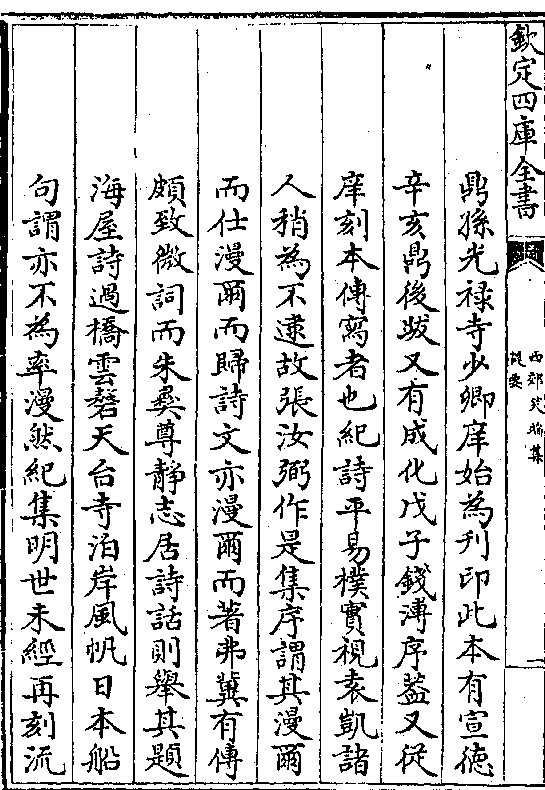 欽定四庫全書
西郊笑端集
提要
鼎孫光禄寺少卿庠始為刊印此本有宣德
辛亥鼎後跋又有成化戊子錢溥序葢又從
庠刻本傳寫者也紀詩平易樸實視袁凱諸
人稍為不逮故張汝弼作是集序謂其漫爾
而仕漫爾而歸詩文亦漫爾而著弗冀有傳
頗致微詞而朱彞尊静志居詩話則舉其題
海屋詩過橋雲磬天台寺泊岸風帆日本船
句謂亦不為率漫然紀集明世未經再刻流